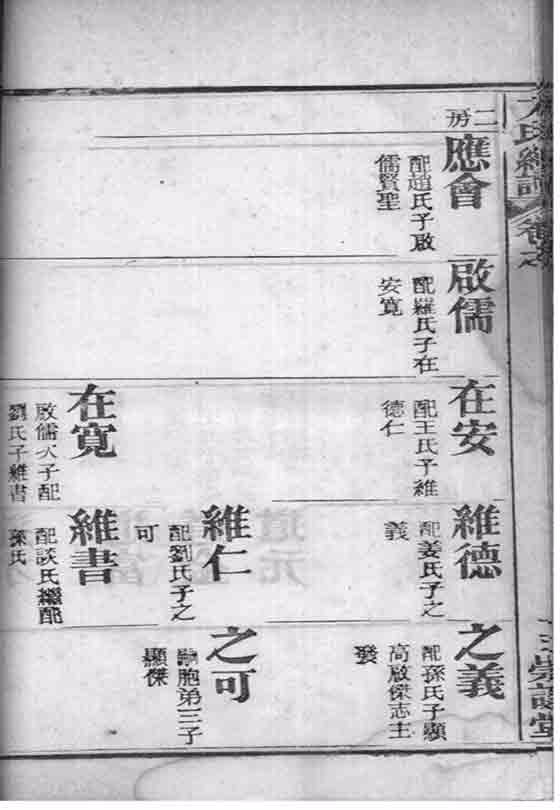 二房
應會
配趙氏子啟
儒賢聖
啟儒
配羅氏子在
安寬
在安
配王氏子維
德仁
在寬
啟儒次子配
劉氏子維書
維德
配姜氏子之
義
維仁
配劉氏子之
可
維書
配談氏繼配
孫氏
之義
配孫氏子顯
高啟傑志主
發
之可
胞弟三子
顯傑